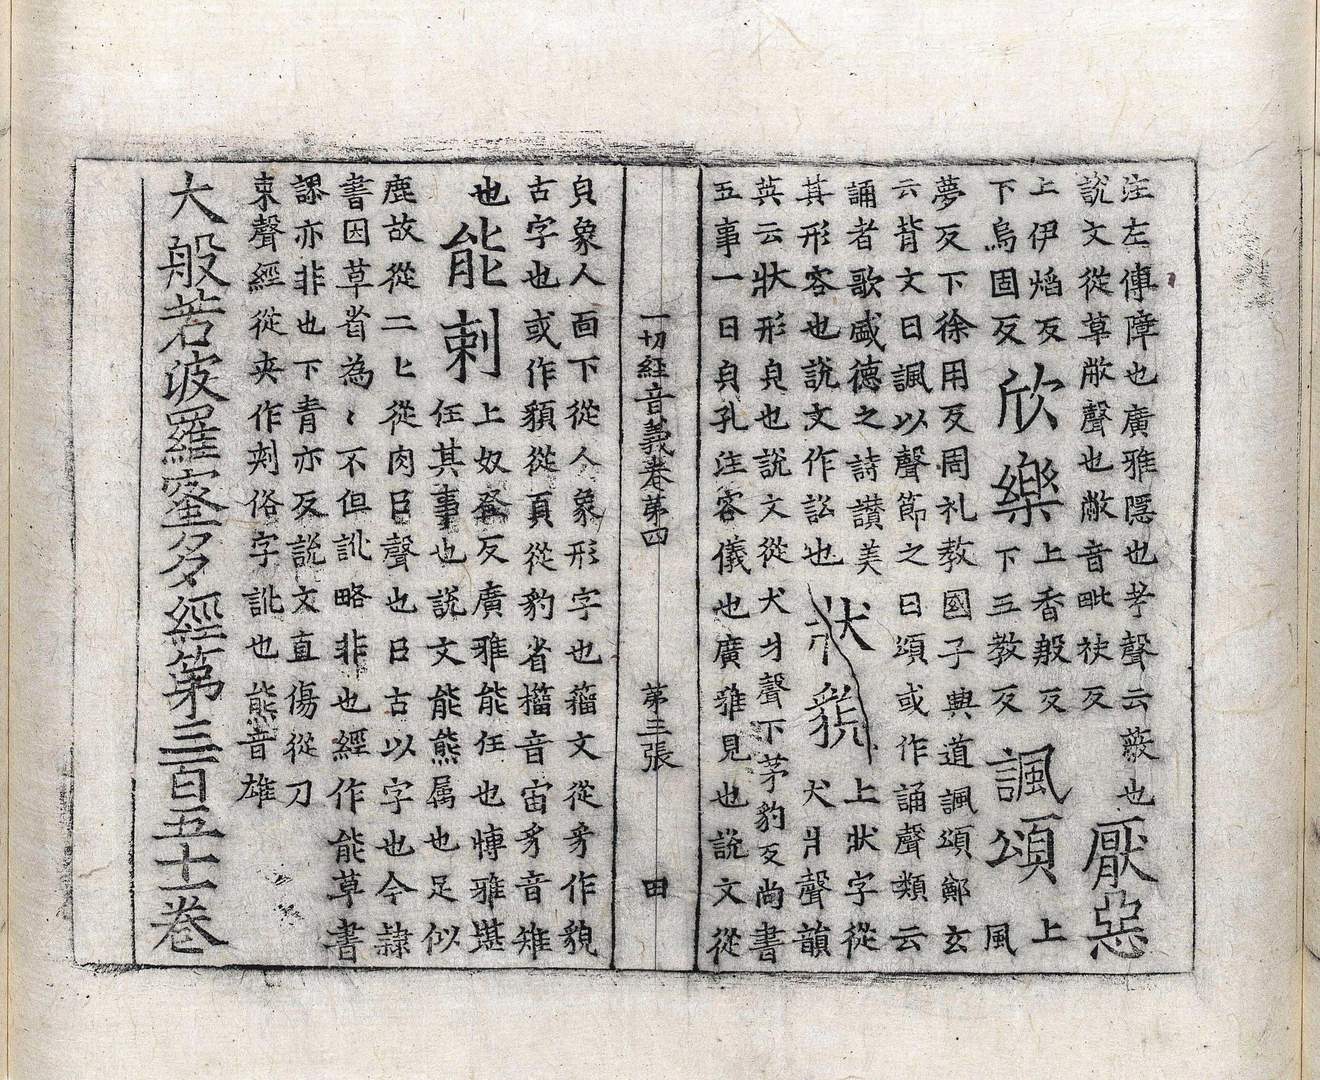 注左傳障也廣雅隱也孝聲云蔽也厭惡
說文從草敝聲也敝音毗袂反
上伊熖反欣樂上香般反諷頌上
下烏固反下五教反風
夢反下徐用反周礼教國子興道諷頌鄭玄
云背文曰諷以聲節之曰頌或作誦聲類云
誦者歌盛德之詩讃美狀貌上狀字從
其形容也說文作訟也犬爿聲韻
英云狀形皃也說文從犬爿聲下茅豹反尚書
五事一曰皃孔注容儀也廣雅見也說文從
一切經音義卷第四 第三張 田
皃象人面下從人象形字也籒文從豸作貌
古字也或作䫉從頁從豹省籒音宙豸音雉
也能剌上奴登反廣雅能任也博雅堪
任其事也說文能熊属也足似
鹿故從二匕從肉㠯聲也㠯古以字也今隸
書因草省為、不但訛略非也經作能草書
謬亦非也下青亦反說文直傷從刀
朿聲經從夹作刾俗字訛也熊音雄
大般若波羅蜜多經第三百五十一卷